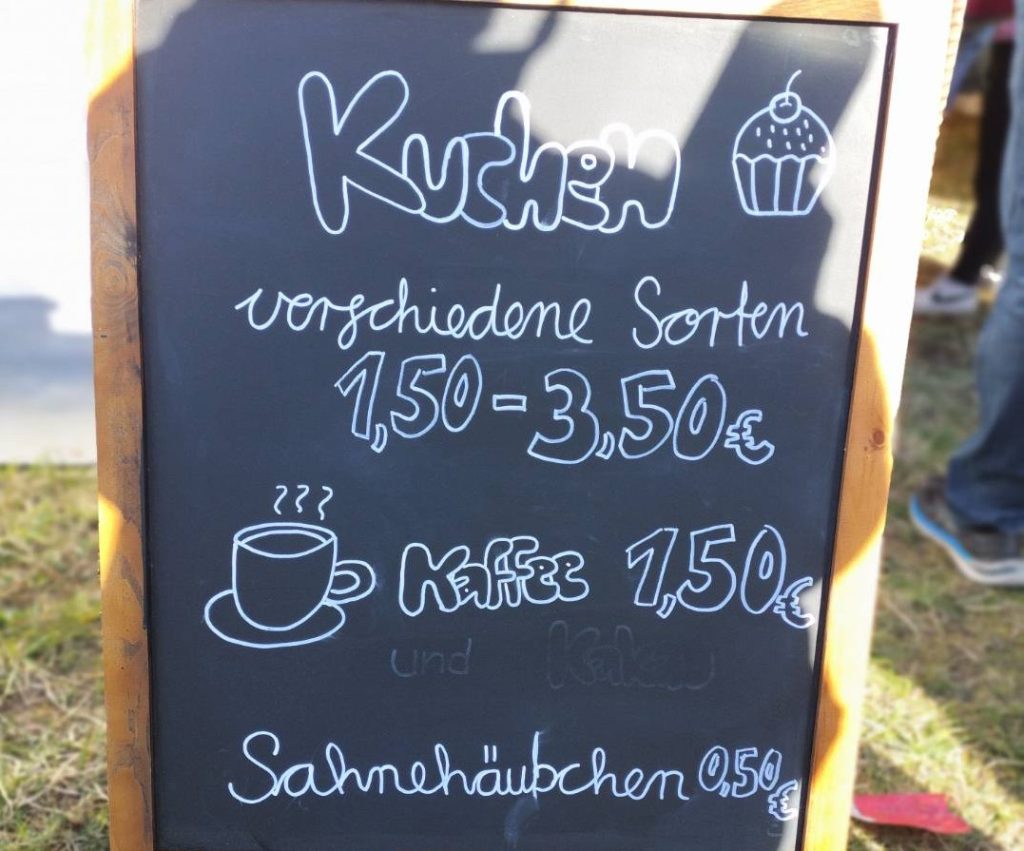 Kuchen
verschiedene Sorten
1,50 - 3,50 €
Kaffee 1,50 €
und Kakao
Sahnehäubchen 0,50 €